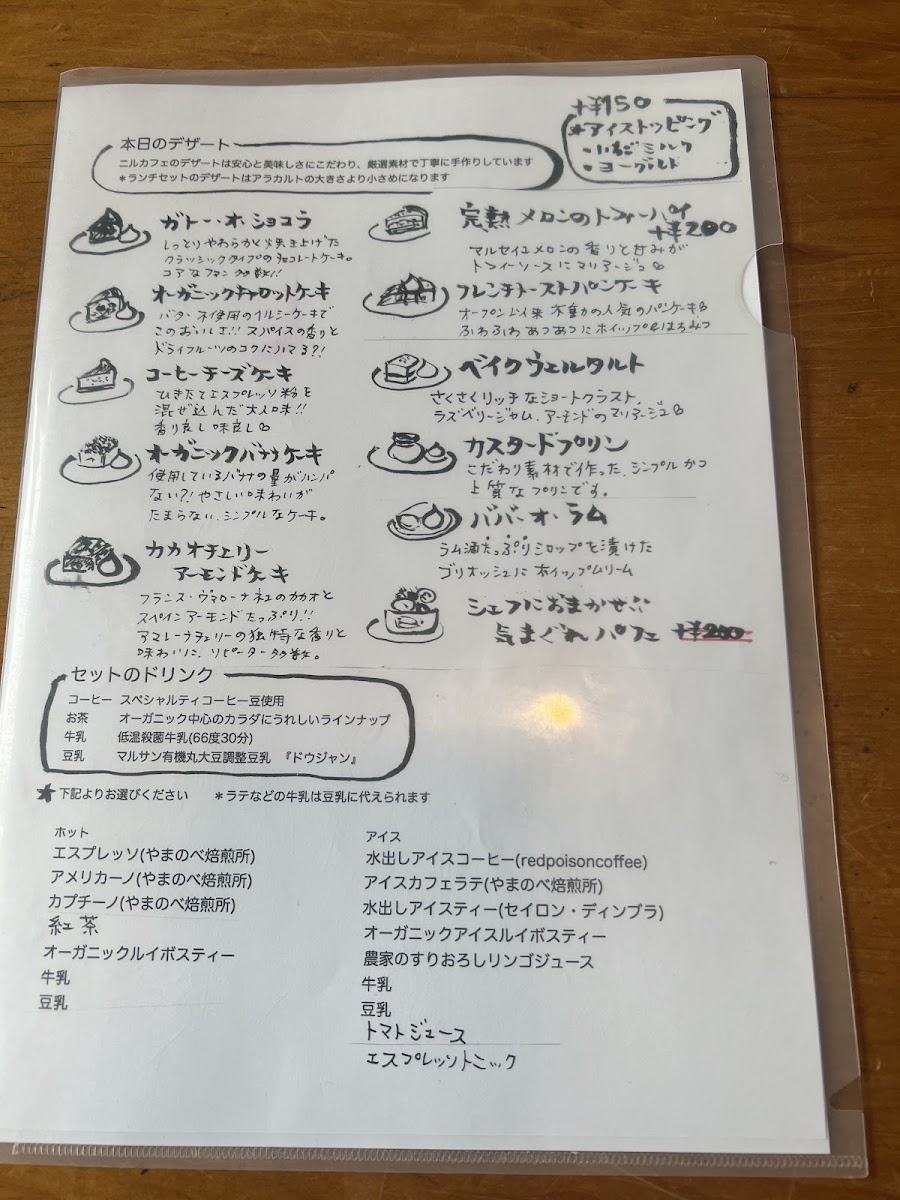 +¥150
*アイストッピング
・いちごミルク
・ヨーグルト
本日のデザート
ニルカフェのデザートは安心と美味しさにこだわり、厳選素材で丁寧に手作りしています
＊ランチセットのデザートはアラカルトの大きさより小さめになります
ガトー・オ・ショコラ
しっとりやわらかく焼き上げた
クラッシックタイプのチョコレートケーキ。
コアなファン多数!!
オーガニックキャロットケーキ
バター不使用のヘルシーケーキで
このおいしさ!!スパイスの香りと
ドライフルーツのコクにハマる?!
コーヒーチーズケーキ
ひきたてエスプレッソ粉を
混ぜ込んだ大人味!!
香り良し味良し
オーガニックバナナケーキ
使用しているバナナの量がハンパ
ない?!やさしい味わいが
たまらない、シンプルなケーキ。
カカオチェリー
アーモンドケーキ
フランス・ヴァローナ社のカカオと
スペインアーモンドたっぷり!!
アマレーナチェリーの独特な香りと
味わいに、リピーター多数。
完熟メロンのトフィーパイ
+¥200
マルセイユメロンの香りと甘みが
トフィーソースにマリアージュ
フレンチトーストパンケーキ
オープン以来不動の人気のパンケーキ
ふわふわあつあつにホイップ&はちみつ
ベイクウェルタルト
さくさくリッチなショートクラスト、
ラズベリージャム、アーモンドのマリアージュ
カスタードプリン
こだわり素材で作った、シンプルかつ
上質なプリンです。
ババ・オ・ラム
ラム酒たっぷりシロップを漬けた
ブリオッシュにホイップクリーム
シェフにおまかせ
気まぐれパフェ +¥200
セットのドリンク
コーヒー スペシャルティコーヒー豆使用
お茶 オーガニック中心のカラダにうれしいラインナップ
牛乳 低温殺菌牛乳(66度30分)
豆乳 マルサン有機丸大豆調整豆乳 『ドウジャン』
★下記よりお選びください ＊ラテなどの牛乳は豆乳に代えられます
ホット
エスプレッソ(やまのべ焙煎所)
アメリカーノ(やまのべ焙煎所)
カプチーノ(やまのべ焙煎所)
紅茶
オーガニックルイボスティー
牛乳
豆乳
アイス
水出しアイスコーヒー(redpoisoncoffee)
アイスカフェラテ(やまのべ焙煎所)
水出しアイスティー(セイロン・ディンブラ)
オーガニックアイスルイボスティー
農家のすりおろしリンゴジュース
牛乳
豆乳
トマトジュース
エスプレッソトニック